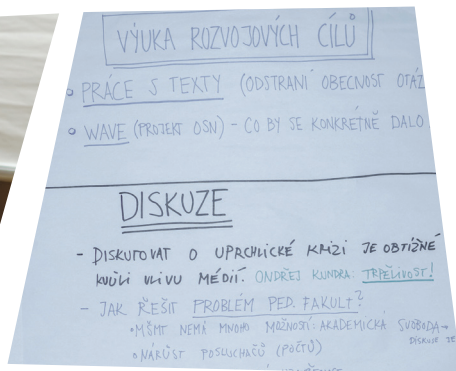 VÝUKA ROZVOJOVÝCH CÍLŮ
PRÁCE S TEXTY (ODSTRANÍ OBECNOST OTÁZ
WAVE (PROJEKT OSN) - CO BY SE KONKRÉTNĚ DALO
DISKUZE
- DISKUTOVAT O UPRCHLICKÉ KRIZI JE OBTÍŽNÉ
KVŮLI VLIVU MÉDIÍ. ONDŘEJ KUNDRA: TRPĚLIVOST!
- JAK ŘEŠIT PROBLÉM PED. FAKULT?
MŠMT NEMÁ MNOHO MOŽNOSTÍ: AKADEMICKÁ SVOBODA →
DISKUZE JE
NÁRŮST POSLUCHAČŮ (POČTŮ)